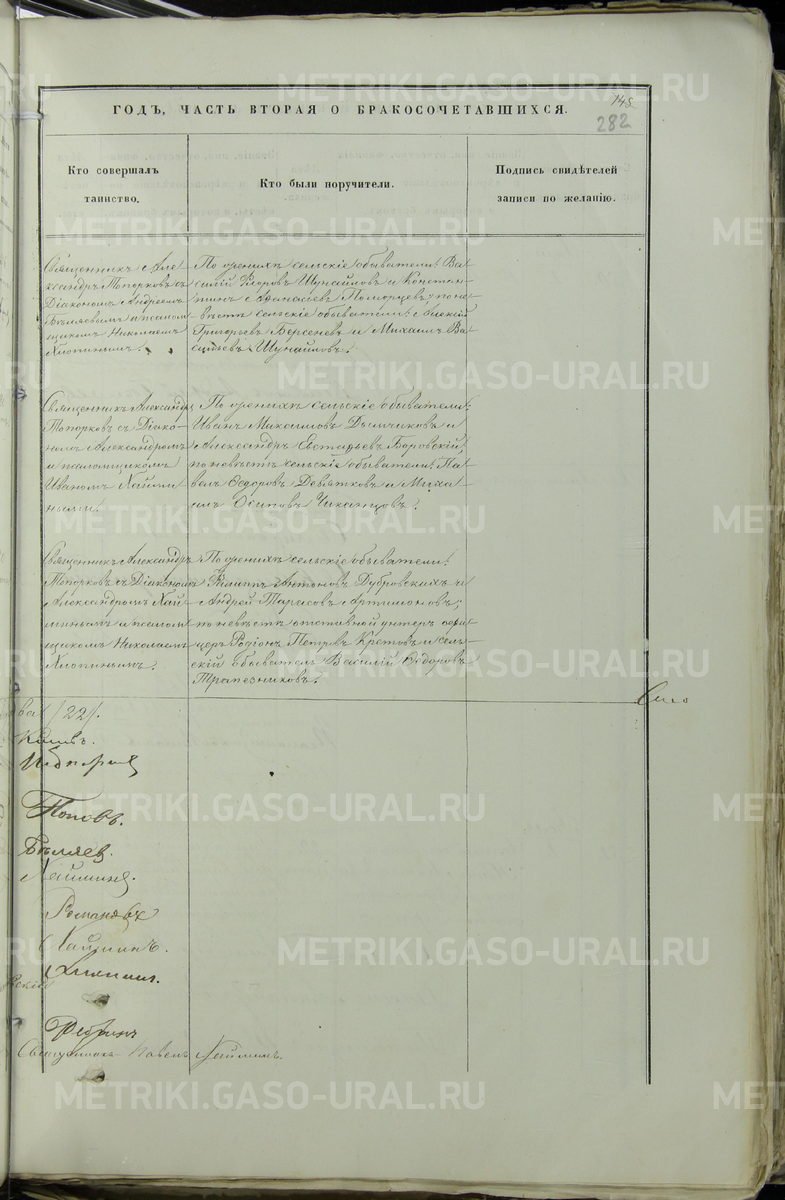 145
282
ГОДЪ, ЧАСТЬ ВТОРАЯ О БРАКОСОЧЕТАВШИХСЯ.
Кто совершалъ
таинство.
Кто были поручители.
Подпись свидѣтелей
записи по желанію.
Священникъ Але
ксандръ Топорковъ съ
Діакономъ Андреемъ
Бѣляевымъ и псалом
щикомъ Николаемъ
Хлопинымъ.
По женихѣ сельскіе обыватели: Ва
силій Ѳедоровъ Шунайловъ и Констан
тинъ Афанасьевъ Поморцевъ; по не
вѣстѣ сельскіе обыватели: Алексѣй
Григорьевъ Берсеневъ и Михаилъ Ва
сильевъ Шунайловъ.
Священникъ Александръ
Топорковъ съ Діако
номъ Александромъ
и псаломщикомъ
Иваномъ Хайми
ными.
По женихѣ сельскіе обыватели:
Иванъ Максимовъ и
Александръ Евстафьевъ Боровскій;
по невѣстѣ сельскіе обыватели: Па
велъ Ѳедоровъ Девятковъ и Миха
илъ Осиповъ
Священникъ Александръ
Топорковъ съ Діакономъ
Александромъ Хай
минымъ и псалом
щикомъ Николаемъ
Хлопинымъ.
По женихѣ сельскіе обыватели:
Филиппъ Антоновъ Дубровскихъ и
Андрей Тарасовъ Артимоновъ;
по невѣстѣ отставной унтеръ офи
церъ Родіонъ Петровъ Кретовъ и сель
скій обыватель Василій Ѳедоровъ
Трапезниковъ.
/22/.
Поповъ.
Бѣляевъ.
Хайминъ.
Романовъ
Хайминъ.
Хлопинъ.
Священникъ Павелъ Хайминъ.
METRIKI.GASO-URAL.RU